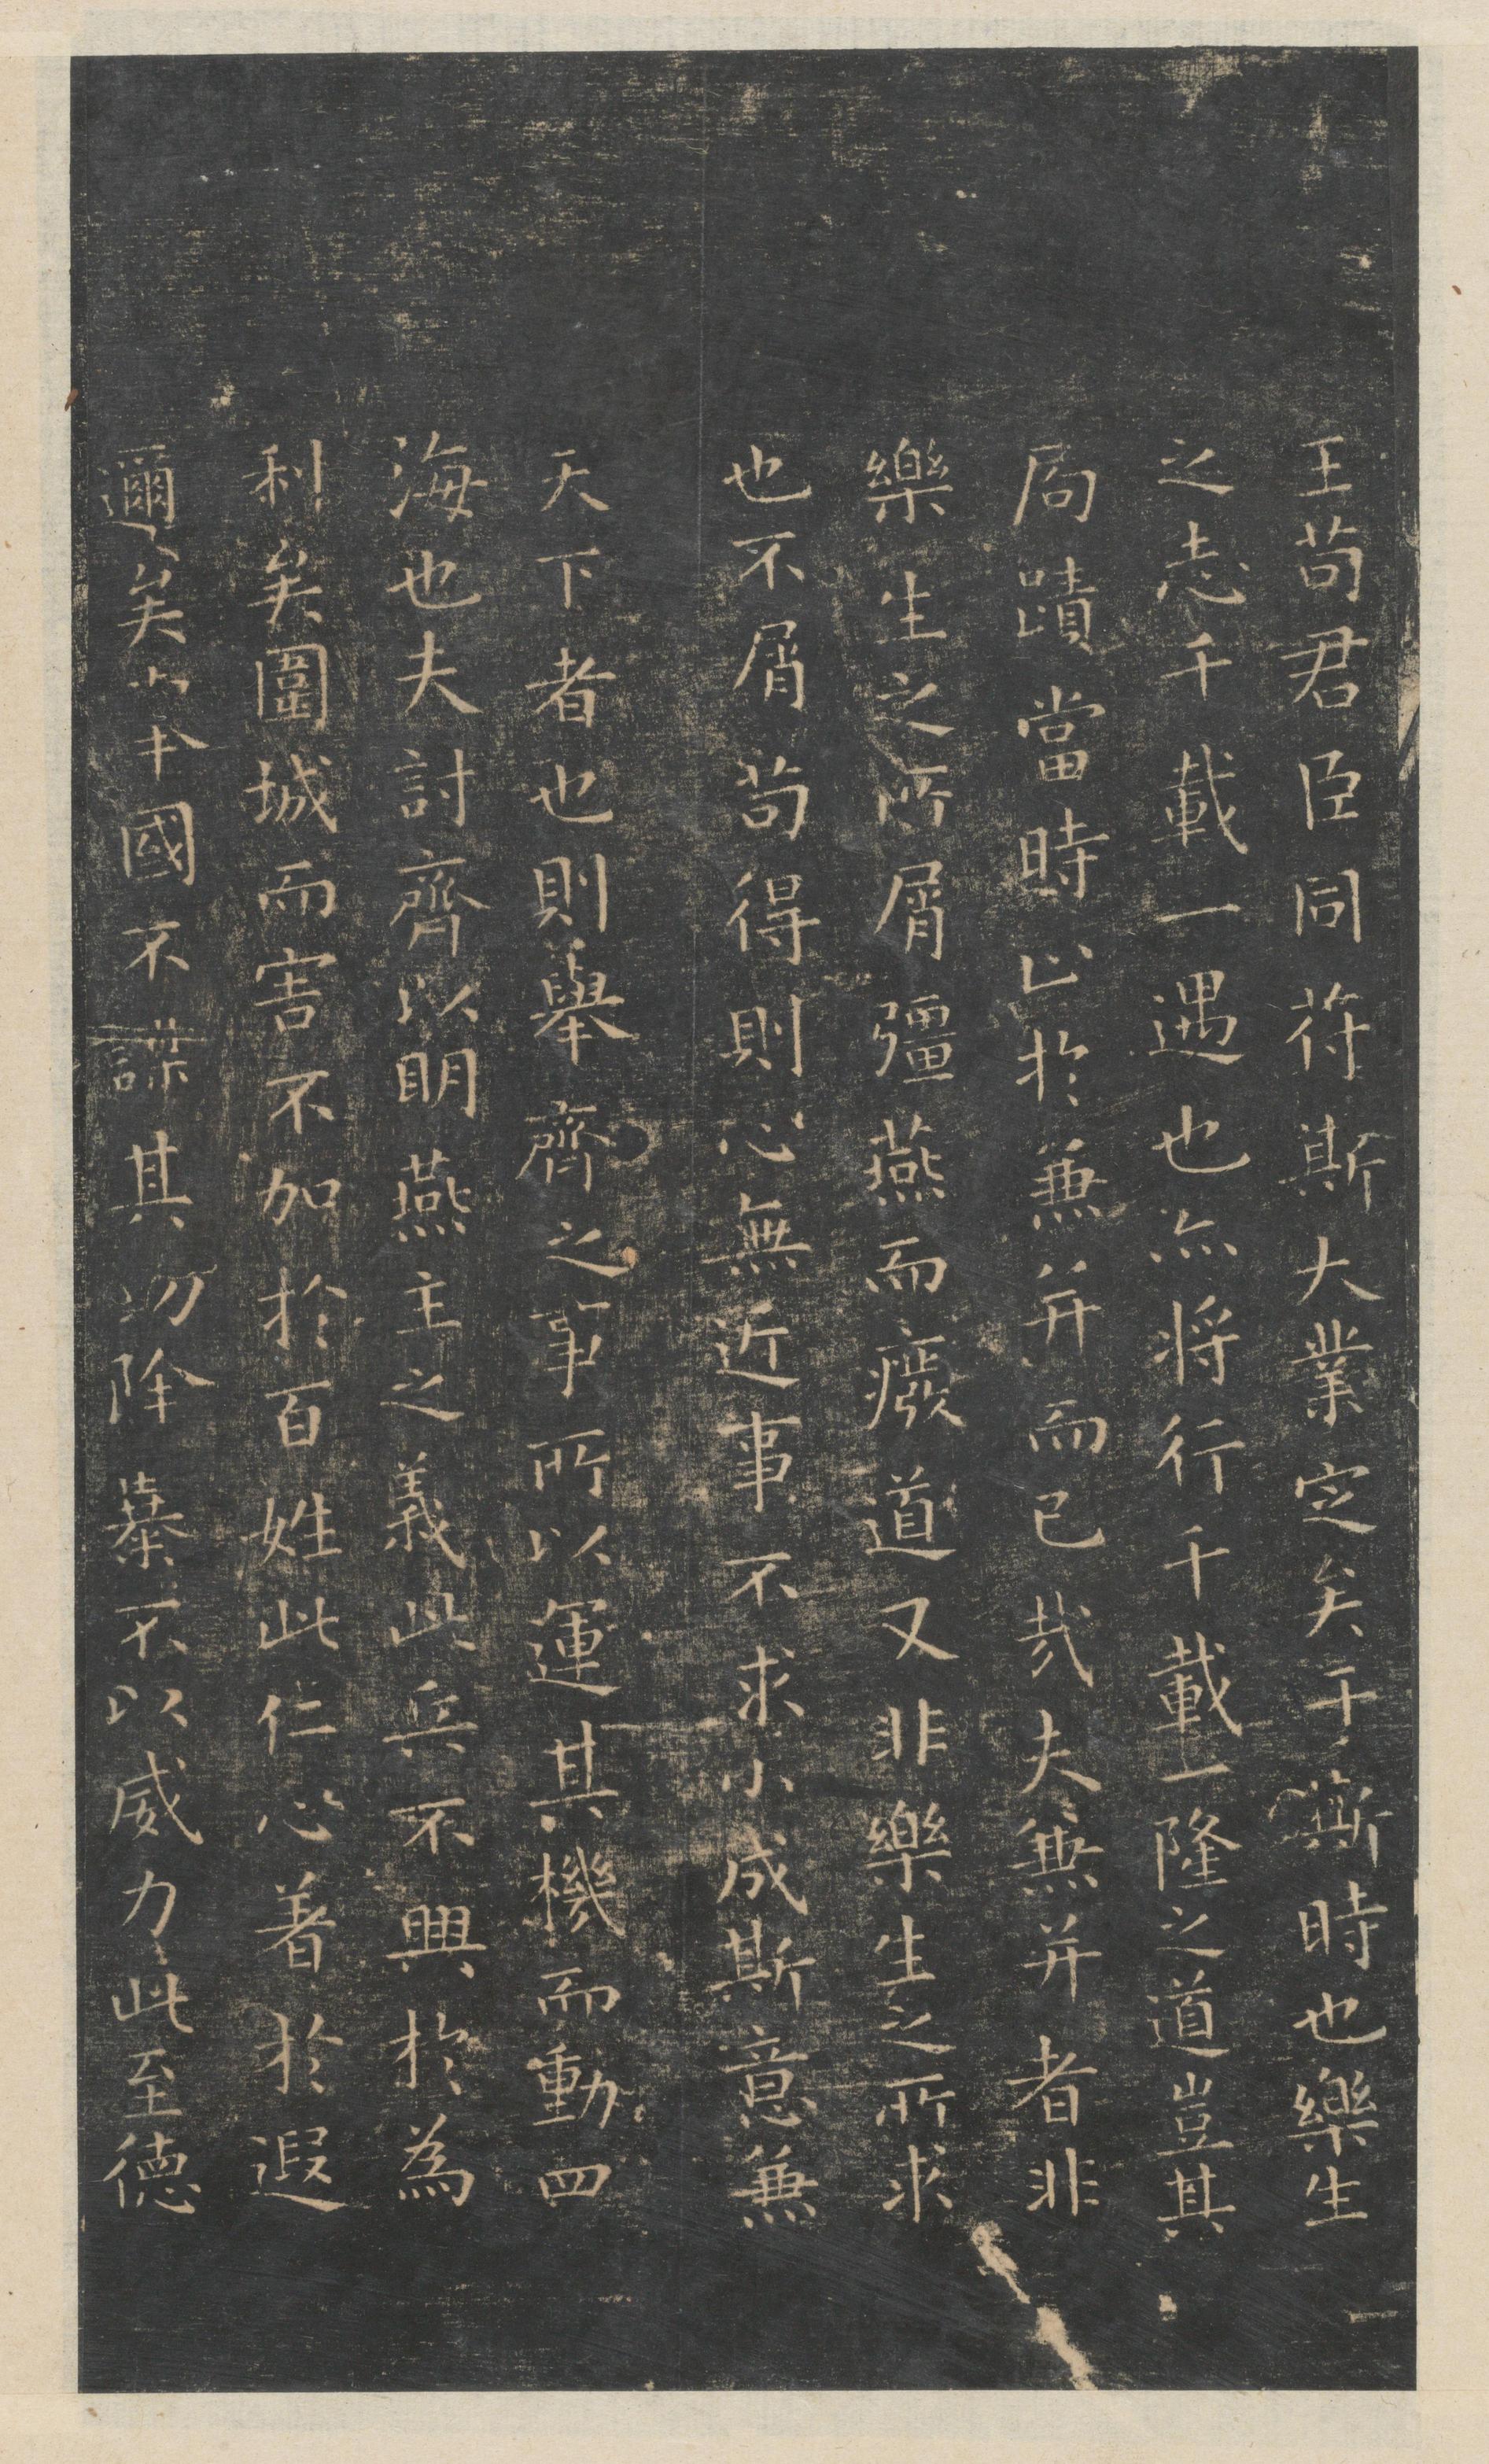 王苟君臣同苻斯大業定矣于斯時也樂生
之志千載一遇也亦將行千載一隆之道豈其
局蹟當時止於兼并而已哉夫無并者非
樂生之所屑彊燕而癈道又非樂生之所求
也不屑苟得則心無近事不求小成斯意兼
天下者也則舉齊之事所以運其機而動四
海也夫討齊以明燕主之義此兵不興於為
利矣圍城而害不加於百姓此仁心著於遐
邇矣國不謀其功除暴不以威力此至德